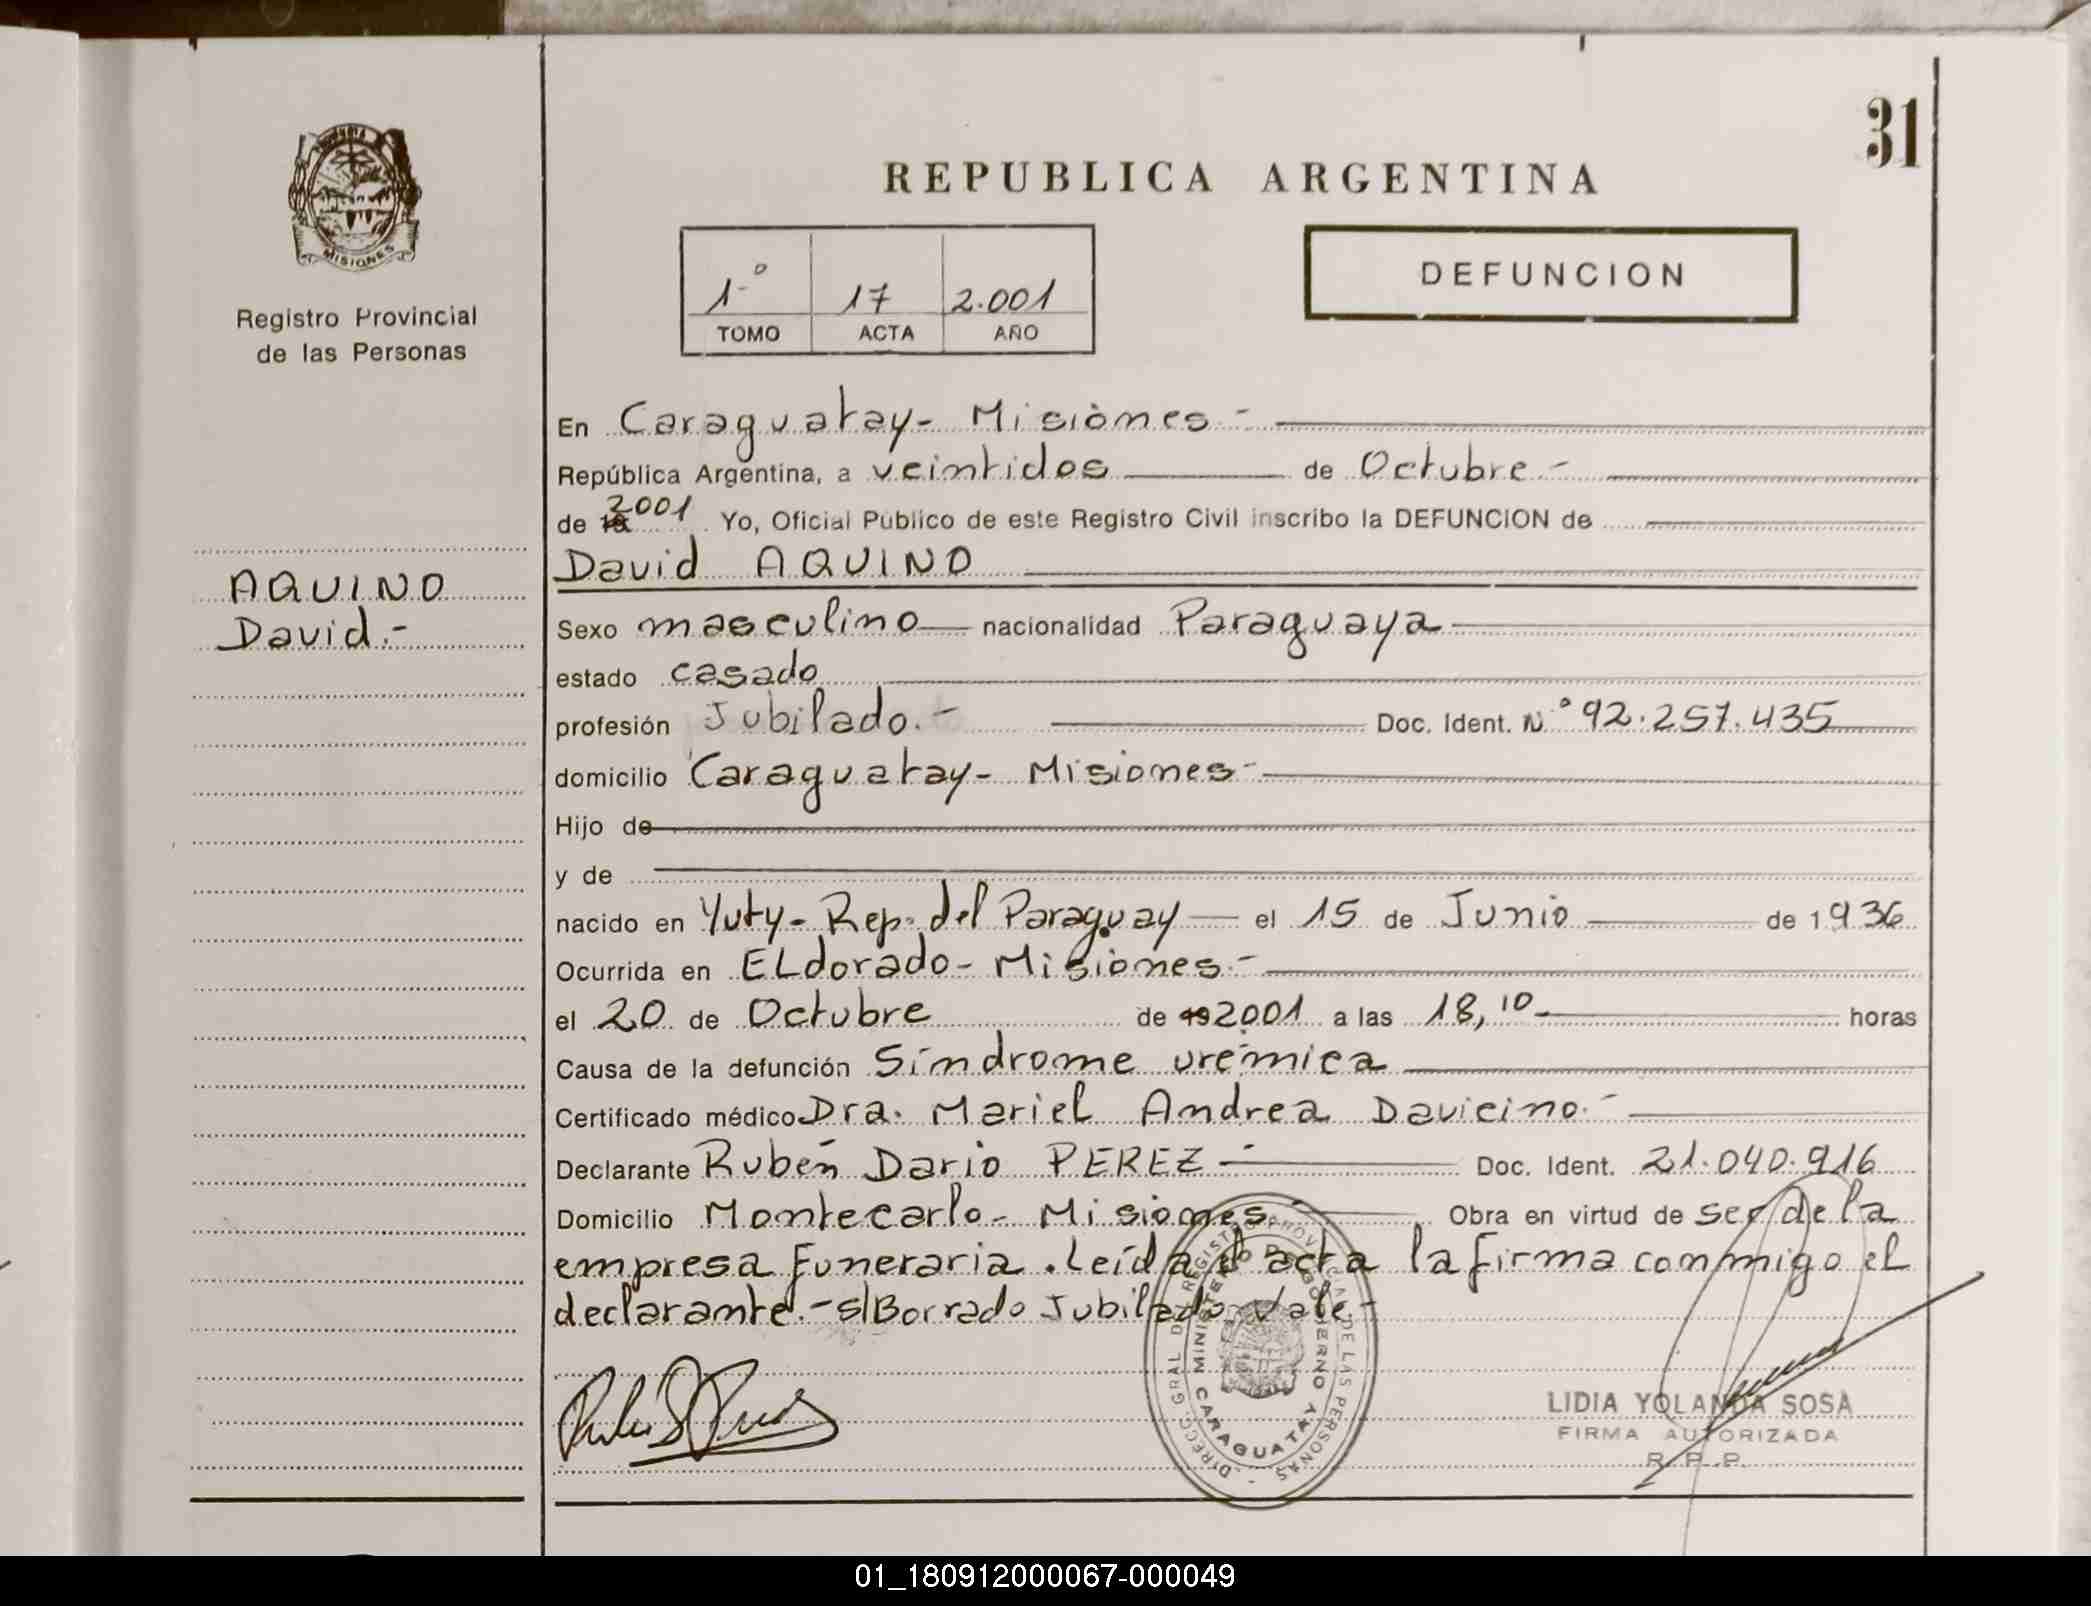 31
REPUBLICA ARGENTINA
MISIONES
Registro Provincial
de las Personas
1º 17 2.001
TOMO ACTA AÑO
DEFUNCION
AQUINO
David.-
En Caraguatay- Misiones-
República Argentina, a veintidos de Octubre-
de 19 2001 Yo, Oficial Público de este Registro Civil inscribo la DEFUNCION de
David AQUINO
Sexo masculino nacionalidad Paraguaya
estado casado
profesión Jubilado.- Doc. Ident. Nº 92.257.435
domicilio Caraguatay- Misiones-
Hijo de
y de
nacido en Yuty- Rep. del Paraguay el 15 de Junio de 1936
Ocurrida en ELdorado- Misiones.-
el 20 de Octubre de 19 2001 a las 18,10 horas
Causa de la defunción Síndrome urémica
Certificado médico Dra. Mariel Andrea Davicino.-
Declarante Rubén Dario PEREZ- Doc. Ident. 21.040.916
Domicilio Montecarlo- Misiones- Obra en virtud de ser de la
empresa Funeraria. Leída el acta la firma conmigo el
declarante.- s/Borrado Jubilado Vale-
DIRECC. GRAL. DEL REGISTRO PROVINCIAL DE LAS PERSONAS
MINISTERIO DE GOBIERNO
CARAGUATAY
LIDIA YOLANDA SOSA
FIRMA AUTORIZADA
R. P. P.
01_180912000067-000049